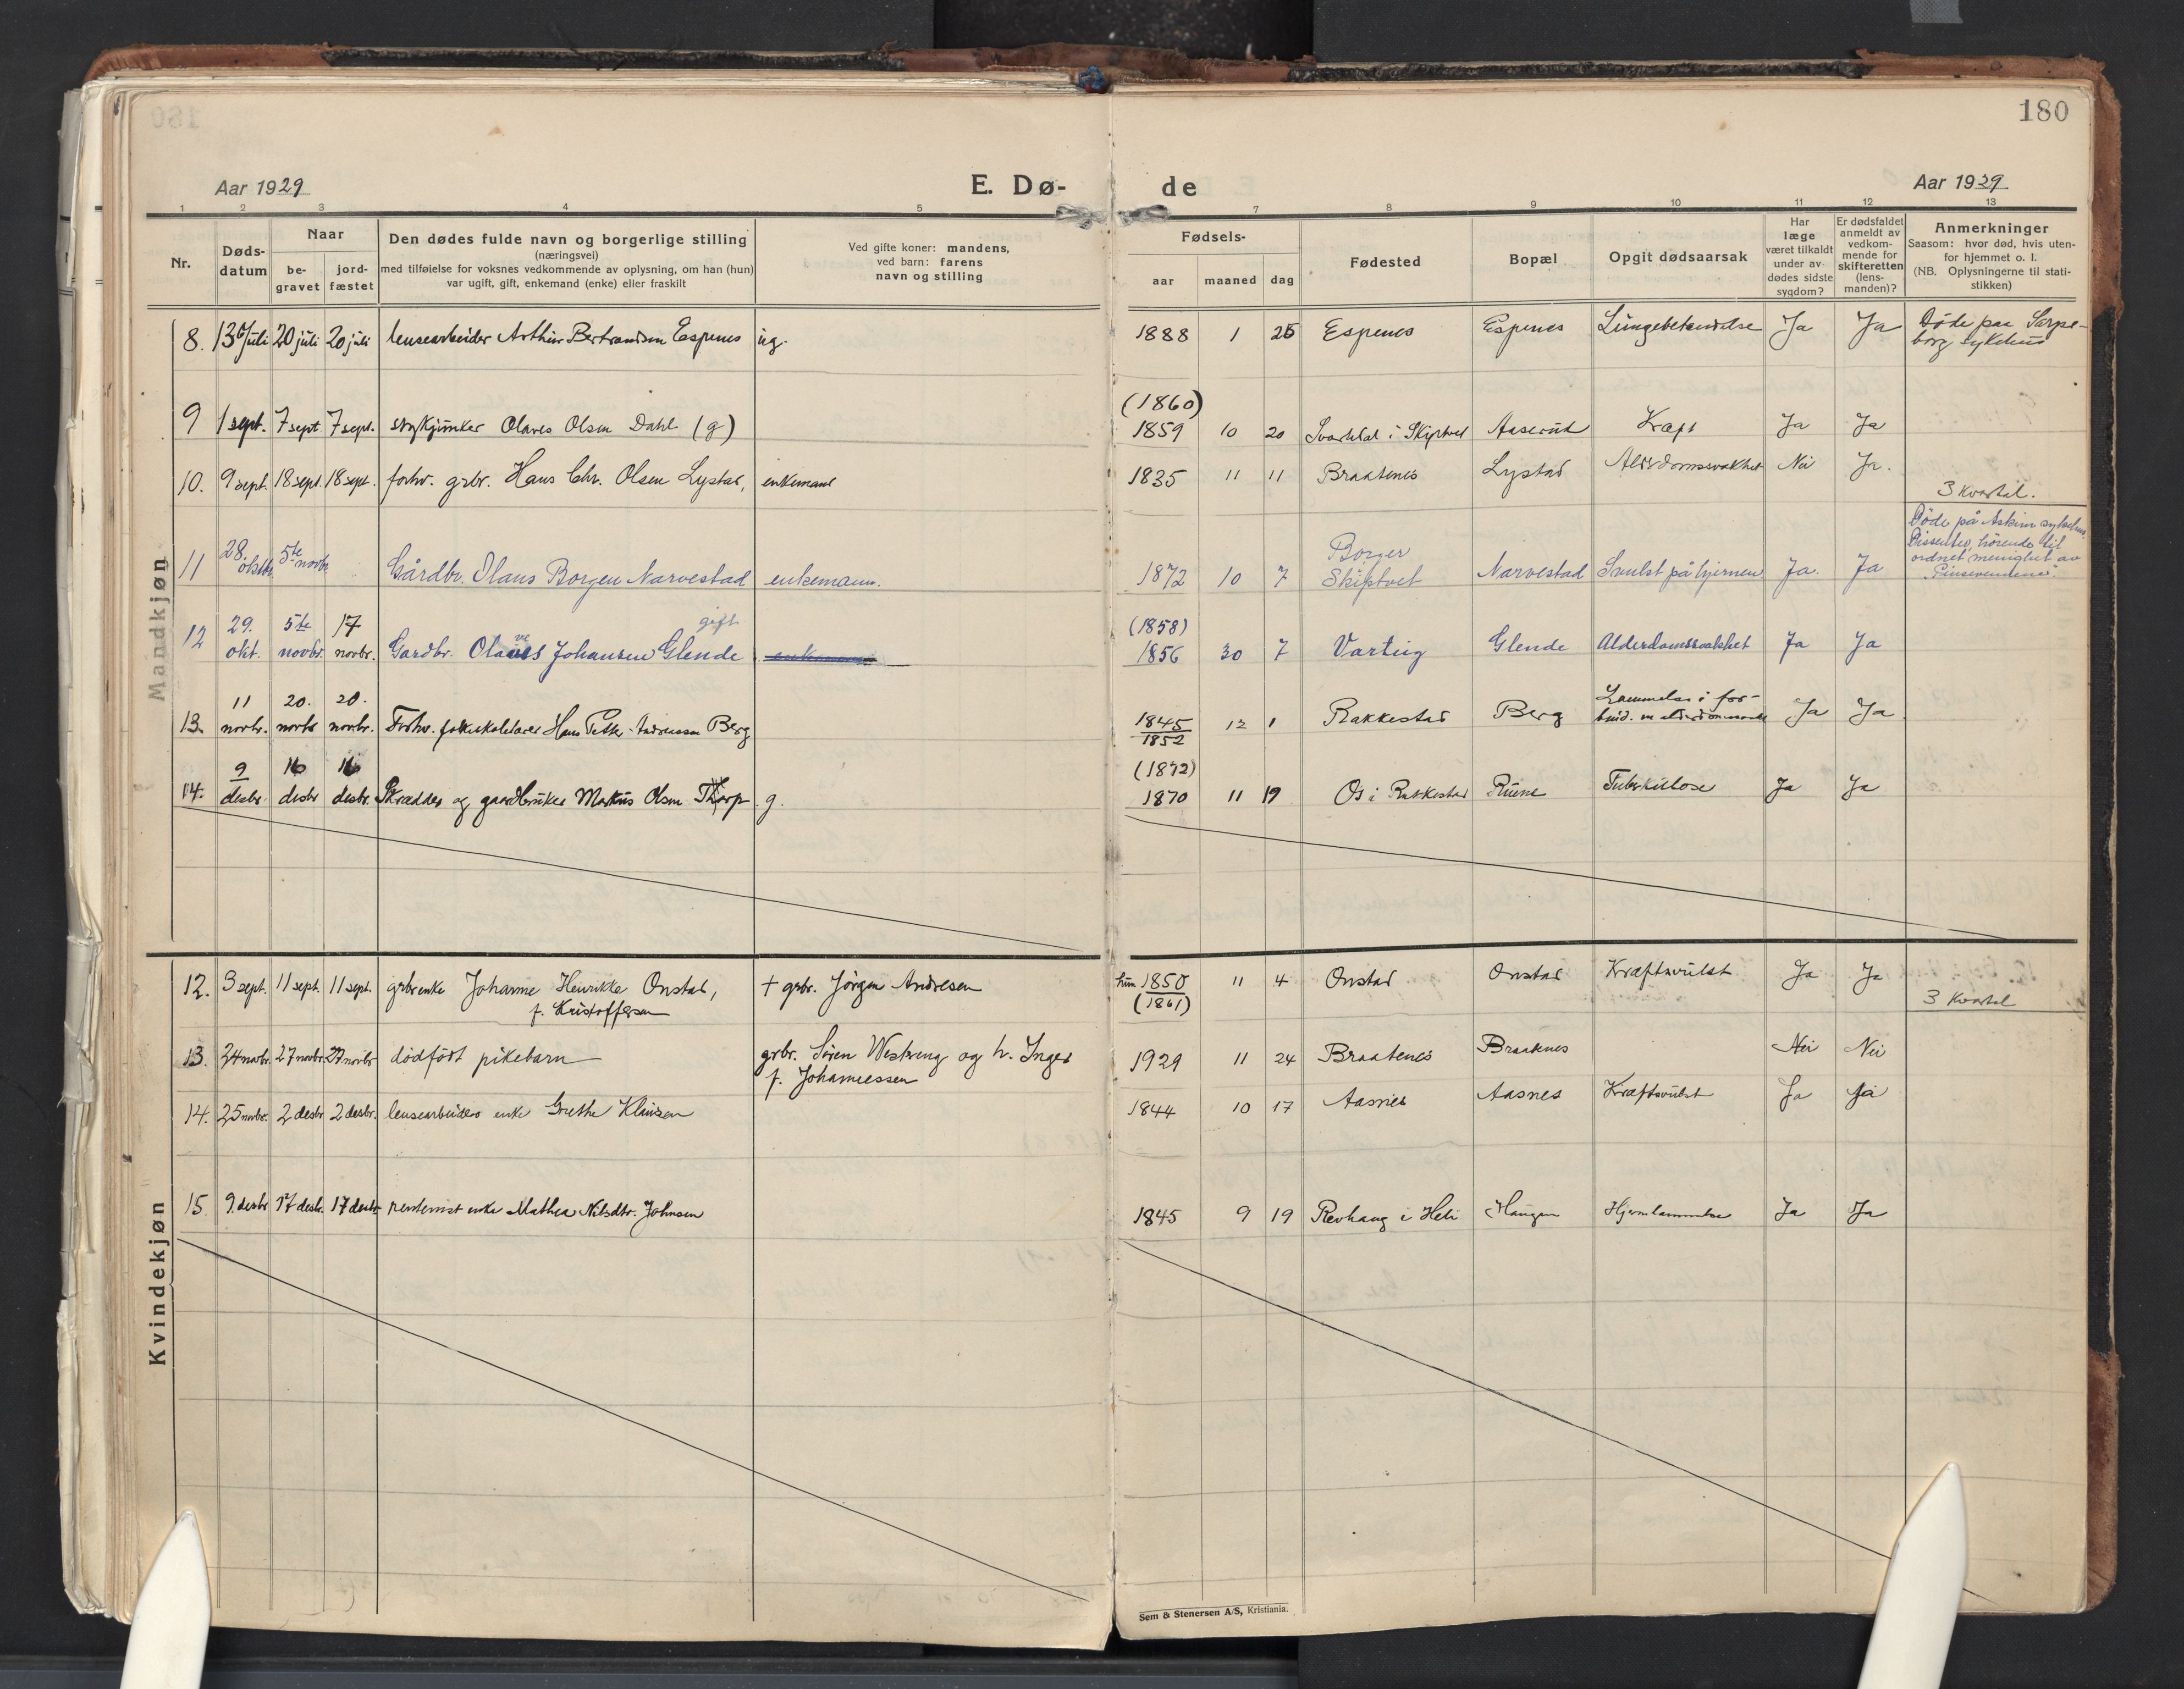 180
Aar 1929
E. Dø-
de
Aar 1929
1 2 3 4 5 7 8 9 10 11 12 13
Nr.
Døds-
datum
Naar
be-
gravet
jord-
fæstet
Den dødes fulde navn og borgerlige stilling
(næringsvei)
med tilføielse for voksnes vedkommende av oplysning, om han (hun)
var ugift, gift, enkemand (enke) eller fraskilt
Ved gifte koner: mandens,
ved barn: farens
navn og stilling
Fødsels-
aar maaned dag
Fødested
Bopæl
Opgit dødsaarsak
Har
læge
været tilkaldt
under av-
dødes sidste
sygdom?
Er dødsfaldet
anmeldt av
vedkom-
mende for
skifteretten
(lens-
manden)?
Anmerkninger
Saasom: hvor død, hvis uten-
for hjemmet o. l.
(NB. Oplysningerne til stati-
stikken)
Mandkjøn
8. 13 juli 20 juli 20 juli lensearbeider Arthur Bertrandsen Espenes ug. 1888 1 25 Espenes Espenes Lungebetændelse Ja Ja Döde paa Sarps-
borg sykehus
(1860)
9 1 sept. 7 sept 7 sept. Olaves Olsen Dahl (g) 1859 10 20 Svartdal i Skiptvet Aaserud Kræft Ja Ja
10. 9 sept. 18 sept. 18 sept. forhv. grbr. Hans Chr. Olsen Lystad, enkemand 1835 11 11 Braatenes Lystad Alderdomssvakhet Nei Ja.
3 kvartal.
11 28. oktbr. 5te novbr. Gårdbr. Olaus Borgen Narvestad enkemann. 1872 10 7 Borger
Skiptvet Narvestad Svulst på hjernen Ja. Ja
Döde på Askim sykehus.
Dissenter, hörende til
ordnet menighet av
"Pinsevennene".
12 29. okt. 5te novbr. 17 novbr. Gardbr. Olaves Johansen Glende gift enkemann (1858)
1856 30 7 Varteig Glende Alderdomssvakhet Ja Ja
13. 11 novbr. 20. novbr 20. novbr. Forhv. folkeskolelærer Hans Petter Andreassen Berg 1845
1852 12 1 Rakkestad Berg Lammelse i for-
bind. m alderdomssvakh Ja Ja
(1872)
14. 9 desbr. 16 desbr 16 desbr. Skrædder og gaardbruker Markus Olsen Thorp g. 1870 11 19 Os i Rakkestad Ruene Tuberkulose Ja Ja
Kvindekjøn
12. 3 sept. 11 sept. 11 sept. grbrenke Johanne Henrikke Onstad,
f. Kristoffersen + grbr. Jörgen Andresen 1850
(1861) 11 4 Onstad Onstad Kræftsvulst Ja Ja
3 Kvartal
13. 24 novbr. 27 novbr. 27 novbr dödfödt pikebarn grbr. Sören Westreng og h. Inger
f. Johannessen 1929 11 24 Braatenes Braatenes Nei Nei
14. 25 novbr. 2 desbr. 2 desbr. lensearbeiders enke Grethe Klausen 1844 10 17 Aasnes Aasnes Kræftsvulst Ja Ja
15 9. desbr 17 desbr. 17 desbr. rentenist enke Mathea Nilsdtr. Johnsen 1845 9 19 Revhaug i Heli Haugen Hjernelammelse Ja Ja
Sem & Stenersen A/S, Kristiania.